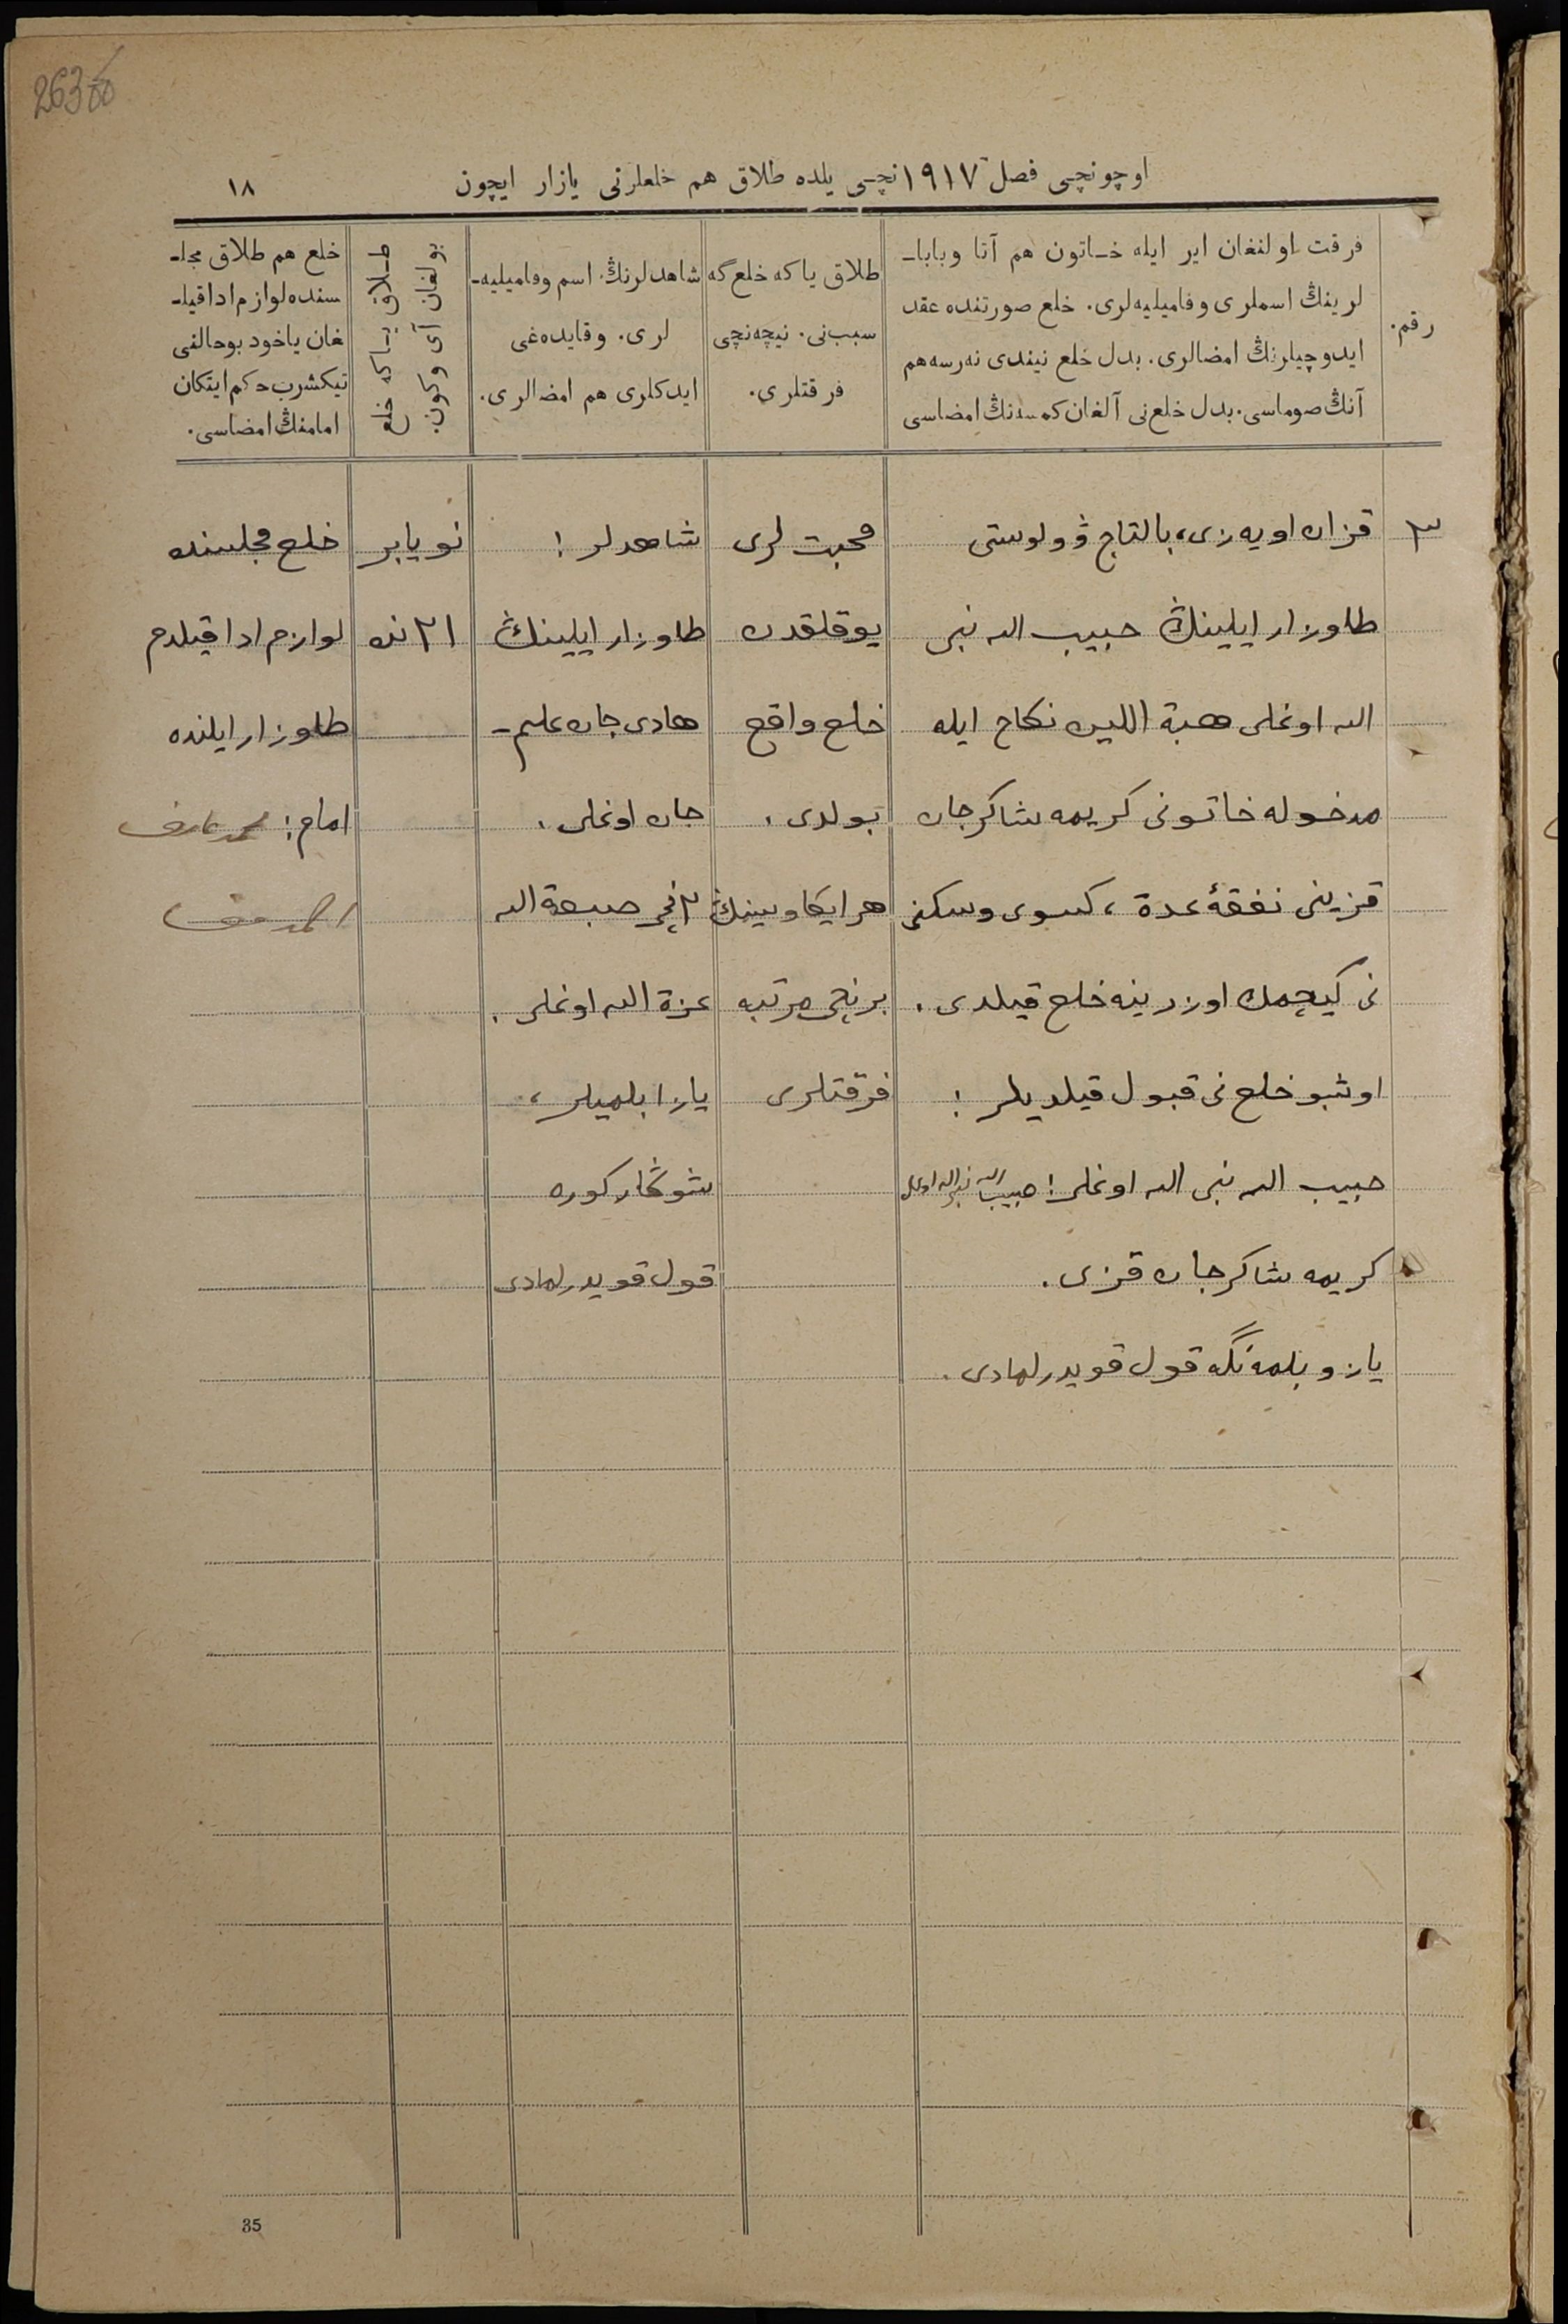 263
اوچونچی فصل ١٩١٧ نچی یلده طلاق هم خلعلرنی یازار ایچون
١٨
رقم.
فرقت اولنغان ایر ایله خاتون هم آتا وبابا-
لرینڭ اسملری وفامیلیه‌لری. خلع صورتنده عقد
ایدوچیلرنڭ امضالری. بدل خلع نیندی نەرسه هم
آنڭ صوماسی. بدل خلع‌نی آلغان کمسه‌نڭ امضاسی
طلاق یاکه خلع گه
سبب‌نی. نیچه‌نچی
فرقتلری.
شاهدلرنڭ اسم وفامیلیه-
لری. وقایده‌غی
ایدکلری هم امضالری.
طلاق یاکه خلع
بولغان آی وکون.
خلع هم طلاق مجلـ
سنده لوازم ادا قیلـ
غان یاخود بوحالنی
تیکشرب حکم ایتکان
امامنڭ امضاسی.
٣
قزان اویه‌زی، بالتاج ۋولوستی
طاوزار ایلینڭ حبیب الله نبی
الله اوغلی هبة اللین نکاح ایله
مدخوله خاتونی کریمه شاکرجان
قزینی نفقهٔ عدة، کسوی وسکنی
نی کیچمك اوزرینه خلع قیلدی.
اوشبو خلع نی قبول قیلدیلر:
حبیب الله نبی الله اوغلی: حبیب الله نبی الله اوغلی
کریمه شاکرجان قزی.
یازو بلمه‌نگه قول قویدرلمادی.
محبت لری
یوقلقدن
خلع واقع
بولدی.
هر ایکاوسینڭ
برنچی مرتبه
فرقتلری
شاهدلر:
طاوزار ایلینڭ
هادی جان علیم-
جان اوغلی.
٢نچی صبغة الله
عزة الله اوغلی.
یازا بلمیلر،
شوڭار کوره
قول قویدرلمادی
نویابر
٢١ نده
خلع مجلسنده
لوازم ادا قیلدم
طاوزار ایلنده
امام: محمد عارف
35